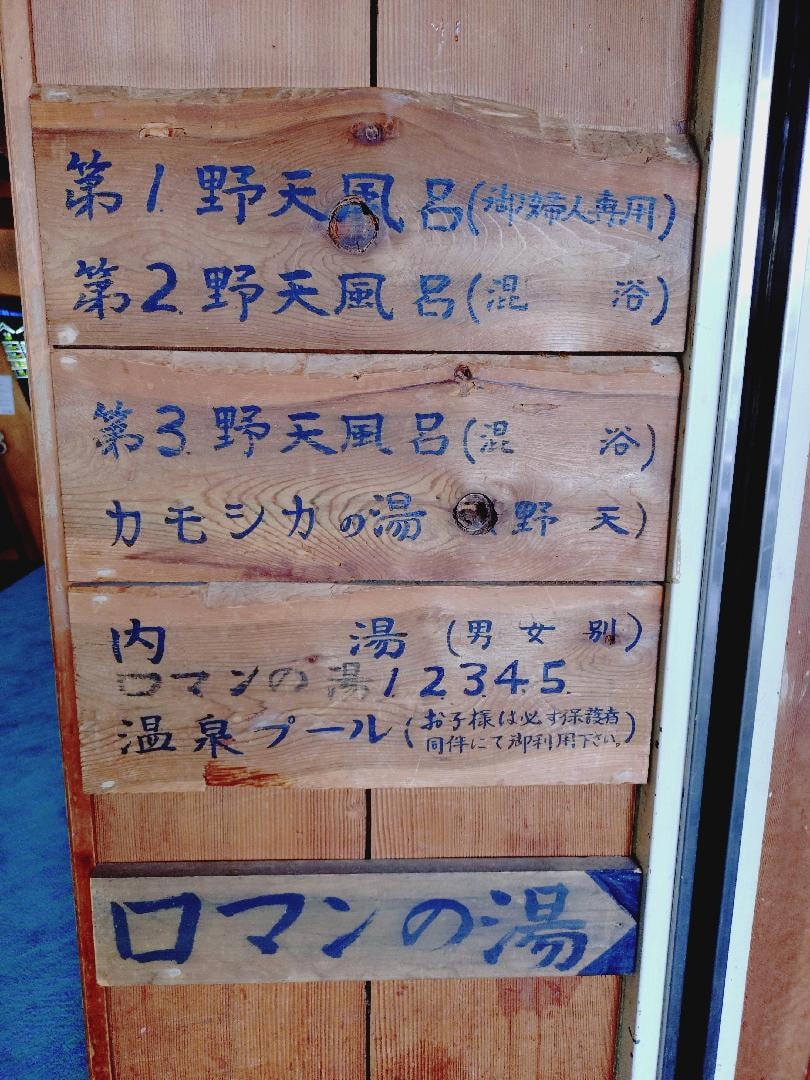 第1.野天風呂(御婦人専用)
第2.野天風呂(混 浴)
第3.野天風呂(混 浴)
カモシカの湯 (野 天)
内 湯 (男 女 別)
ロマンの湯1.2.3.4.5.
温泉プール(お子様は必ず保護者
同伴にて御利用下さい。)
ロマンの湯